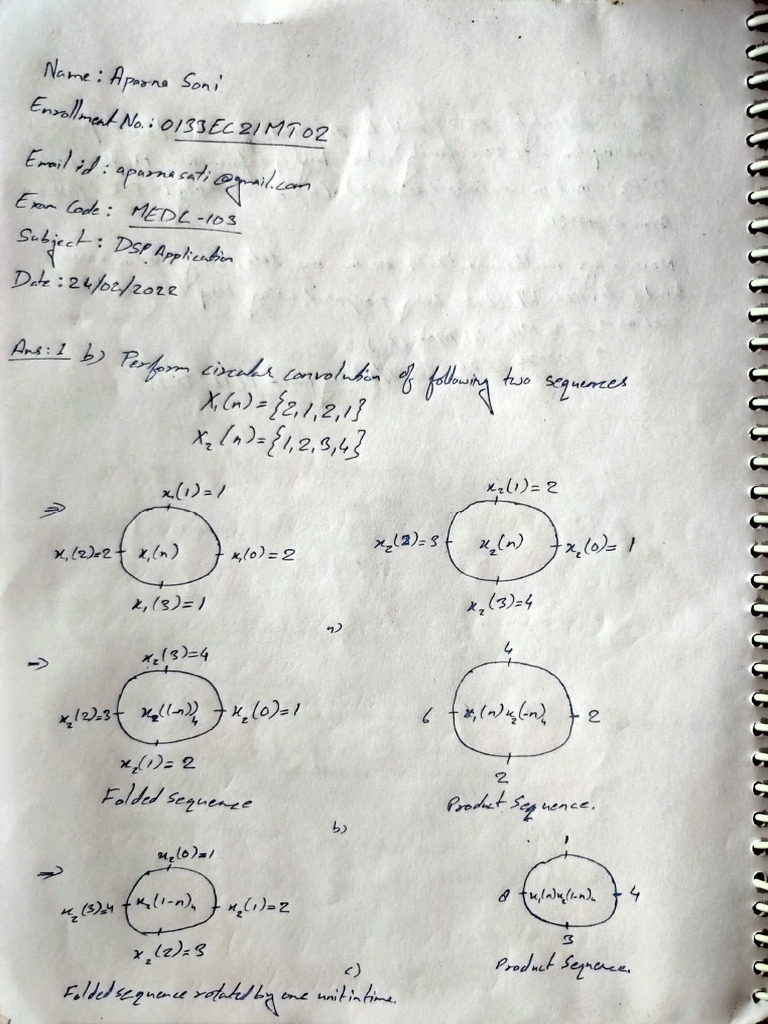 Name: Aparna Soni
Enrollment No.: 0133EC21MT02
Email id: aparnasati@gmail.com
Exam Code: MEDC-103
Subject: DSP Application
Date: 24/02/2022
Ans: 1 b) Perform circular convolution of following two sequences
X₁(n) = {2,1,2,1}
X₂(n) = {1,2,3,4}
⇒ x₁(1)=1
x₁(2)=2 x₁(n) x₁(0)=2
x₁(3)=1
x₂(1)=2
x₂(2)=3 x₂(n) x₂(0)=1
x₂(3)=4
a)
⇒ x₂(3)=4
x₂(2)=3 x₂((-n))₄ x₂(0)=1
x₂(1)=2
Folded sequence
4
6 x₁(n)x₂(-n)₄ 2
2
Product Sequence.
b)
⇒ x₂(0)=1
x₂(3)=4 x₂(1-n)₄ x₂(1)=2
x₂(2)=3
Folded sequence rotated by one unit in time.
1
8 x₁(n)x₂(1-n)₄ 4
3
Product Sequence.
c)